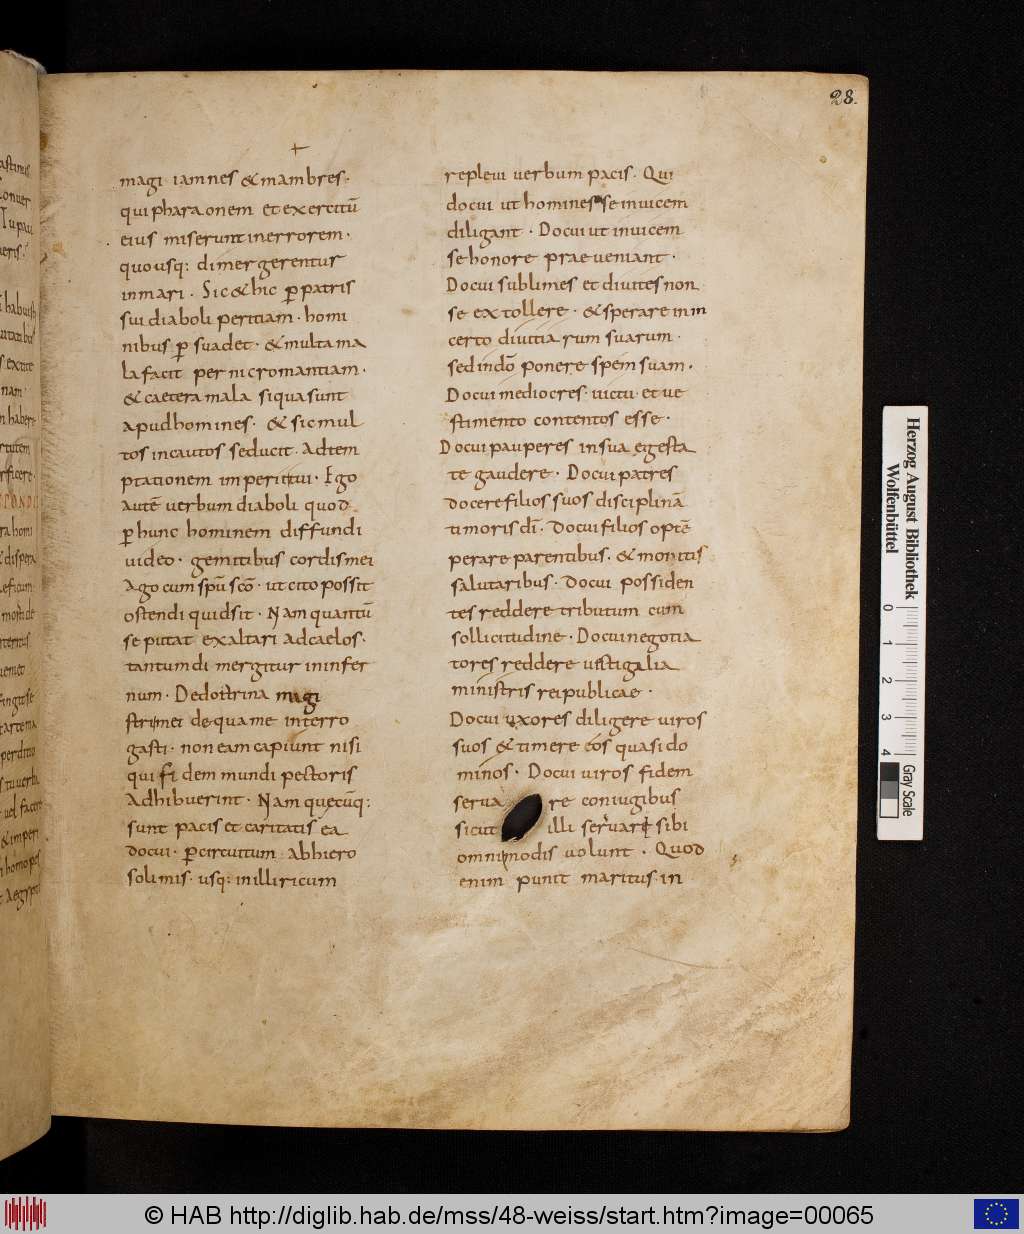 28.
magi · iamnes & mambres ·
qui pharaonem et exercitū
eius miserunt in errorem ·
quousq: dimergerentur
in mari · Sic & hic ꝑ patris
sui diaboli peritiam · homi
nibus ꝑ suadet · & multa ma
la facit per nicromantiam ·
& caetera mala si qua sunt
apud homines · & sic mul
tos incautos seducit · Ad tem
ptationem imperi tui · Ego
autē verbum diaboli quod
ꝑ hunc hominem diffundi
video · gemitibus cordis mei
Ago cum spū scō · ut cito possit
ostendi quid sit · Nam quantū
se putat exaltari ad caelos ·
tantum dimergitur in infer
num · De doctrina magi
stri mei de qua me interro
gasti · non eam capiunt nisi
qui fidem mundi pectoris
Adhibuerint · Nam quęcūq:
sunt pacis et caritatis ea
docui · ꝑ circuitum · ab hiero
solimis · usq: in illiricum
replevi verbum pacis · Qui
docui ut homines se invicem
diligant · Docui ut invicem
se honore praeveniant ·
Docui sublimes et divites non
se extollere · & sperare in in
certo divitiarum suarum ·
sed in dō ponere spem suam ·
Docui mediocres · victu · et ve
stimento contentos esse ·
Docui pauperes in sua egesta
te gaudere · Docui patres
docere filios suos disciplinā
timoris dī · Docui filios optē
perare parentibus · & monitis
salutaribus · Docui possiden
tes reddere tributum cum
sollicitudine · Docui negotia
tores reddere vectigalia
ministris reipublicae ·
Docui uxores diligere viros
suos & timere eos quasi do
minos · Docui viros fidem
serva re coniugibus
sicut illi servari sibi
omnimodis volunt · Quod
enim punit maritus in
Herzog August Bibliothek
Wolfenbüttel
0 1 2 3 4
Gray Scale
© HAB http://diglib.hab.de/mss/48-weiss/start.htm?image=00065